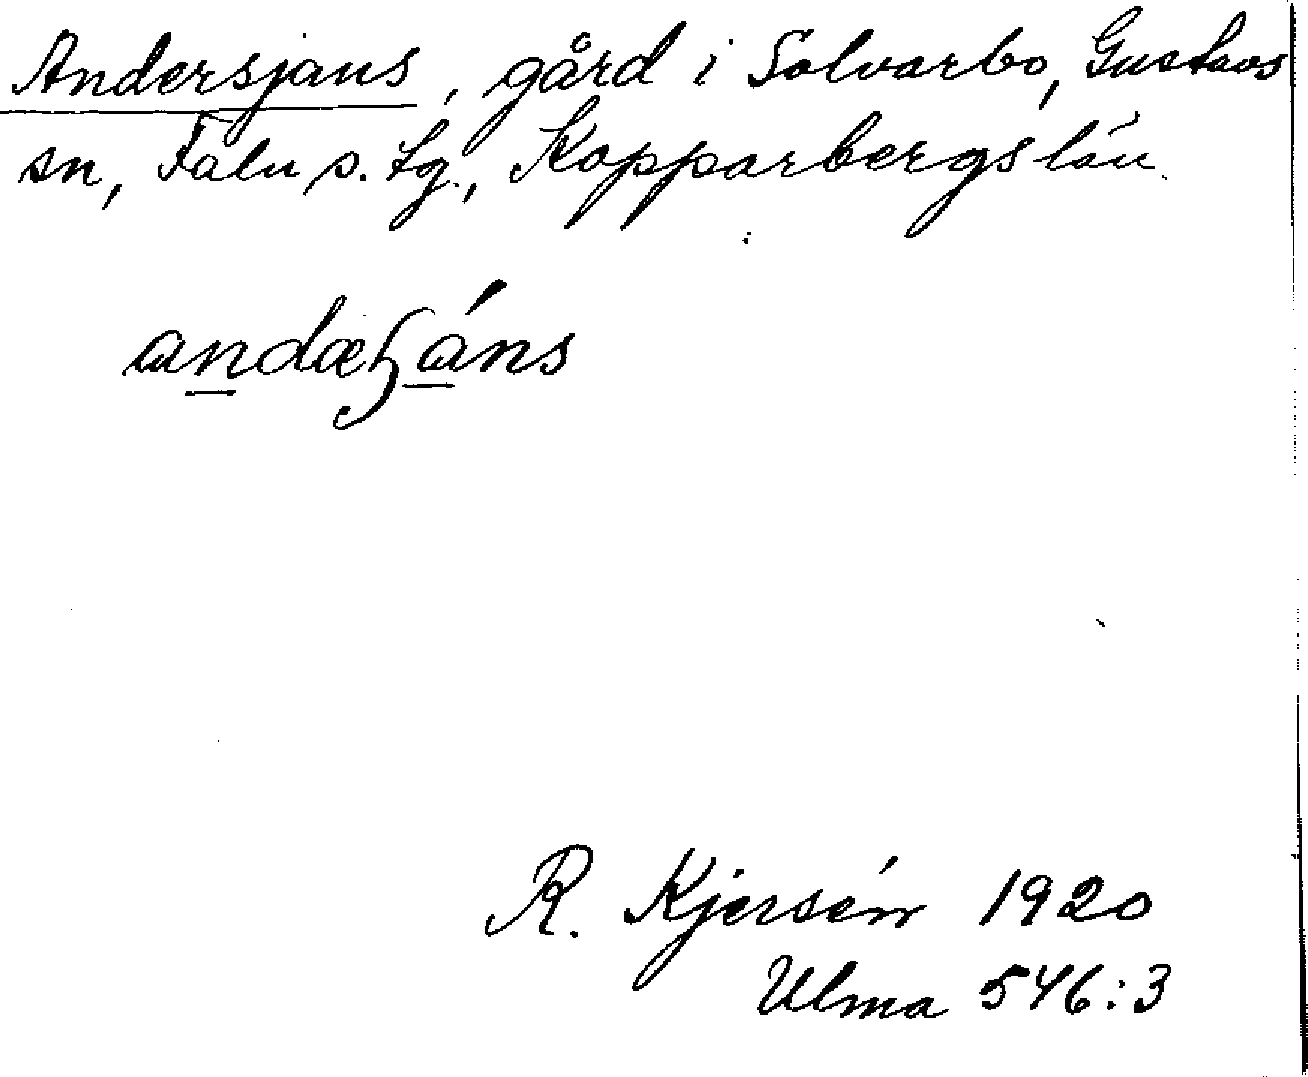 Andersjans, gård i Solvarbo, Gustavs
sn, Falu s. tg., Kopparbergs län.
andæꞕáns
R. Kjersén 1920
Ulma 546:3